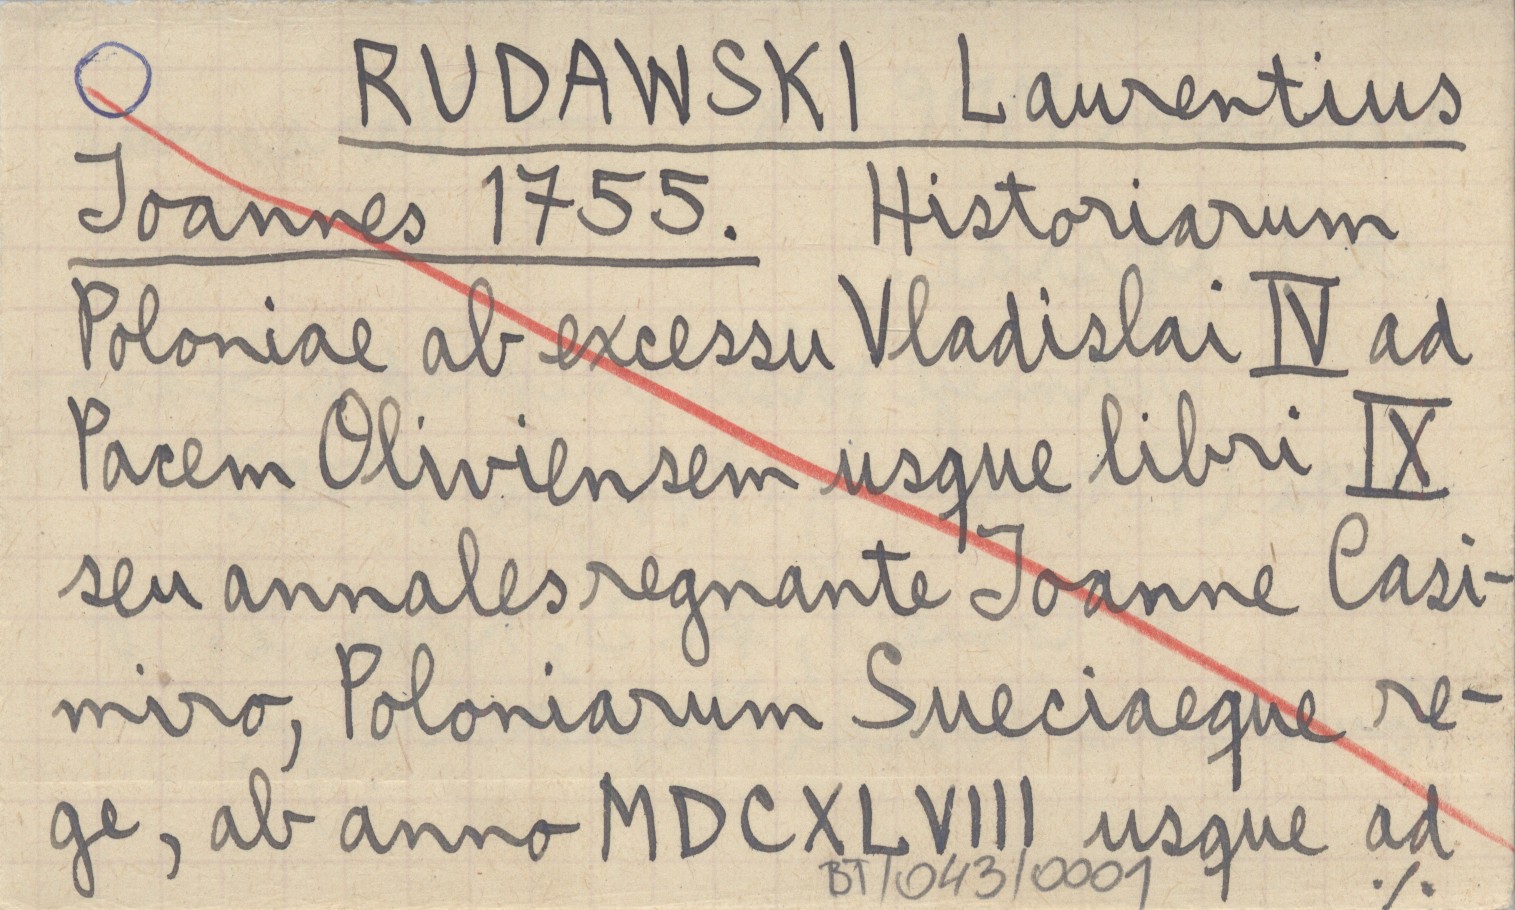 RUDAWSKI Laurentius
Joannes 1755. Historiarum
Poloniae ab excessu Vladislai IV ad
Pacem Oliviensem usque libri IX
seu annales regnante Joanne Casi-
miro, Poloniarum Sueciaeque re-
ge, ab anno MDCXLVIII usque ad
BT/043/0001 ./.